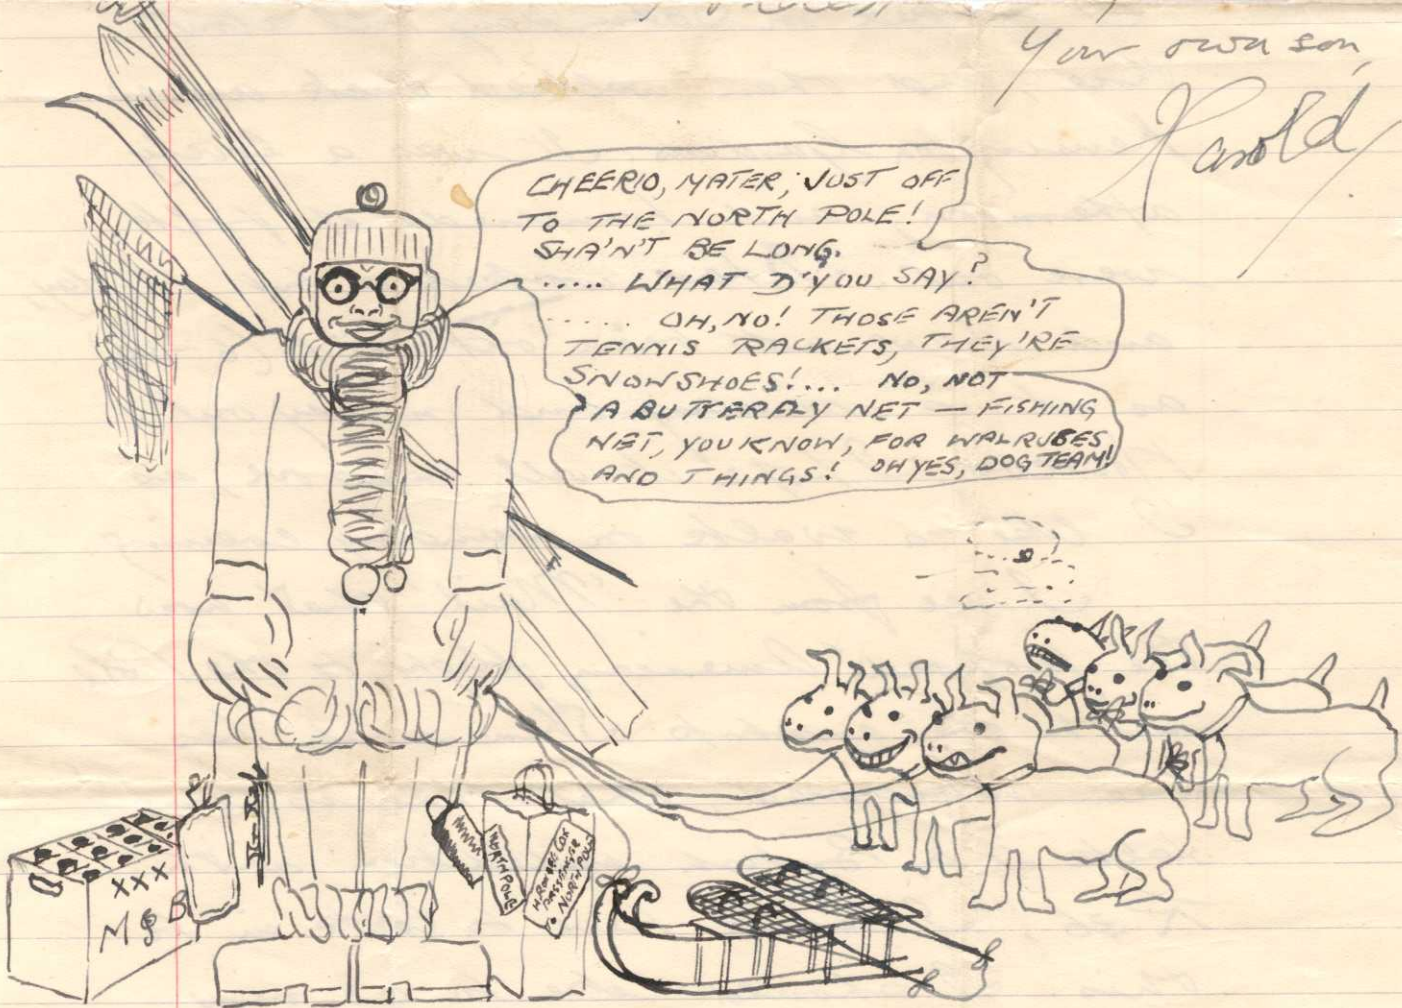 Your own son,
Harold
CHEERIO, MATER, JUST OFF
TO THE NORTH POLE!
SHA'N'T BE LONG.
..... WHAT D'YOU SAY?
...... OH, NO! THOSE AREN'T
TENNIS RACKETS, THEY'RE
SNOWSHOES!... NO, NOT
A BUTTERFLY NET — FISHING
NET, YOU KNOW, FOR WALRUSES,
AND THINGS! OH YES, DOG TEAM!
XXX
M & B
NORTH POLE
PASSENGER
NORTH POLE